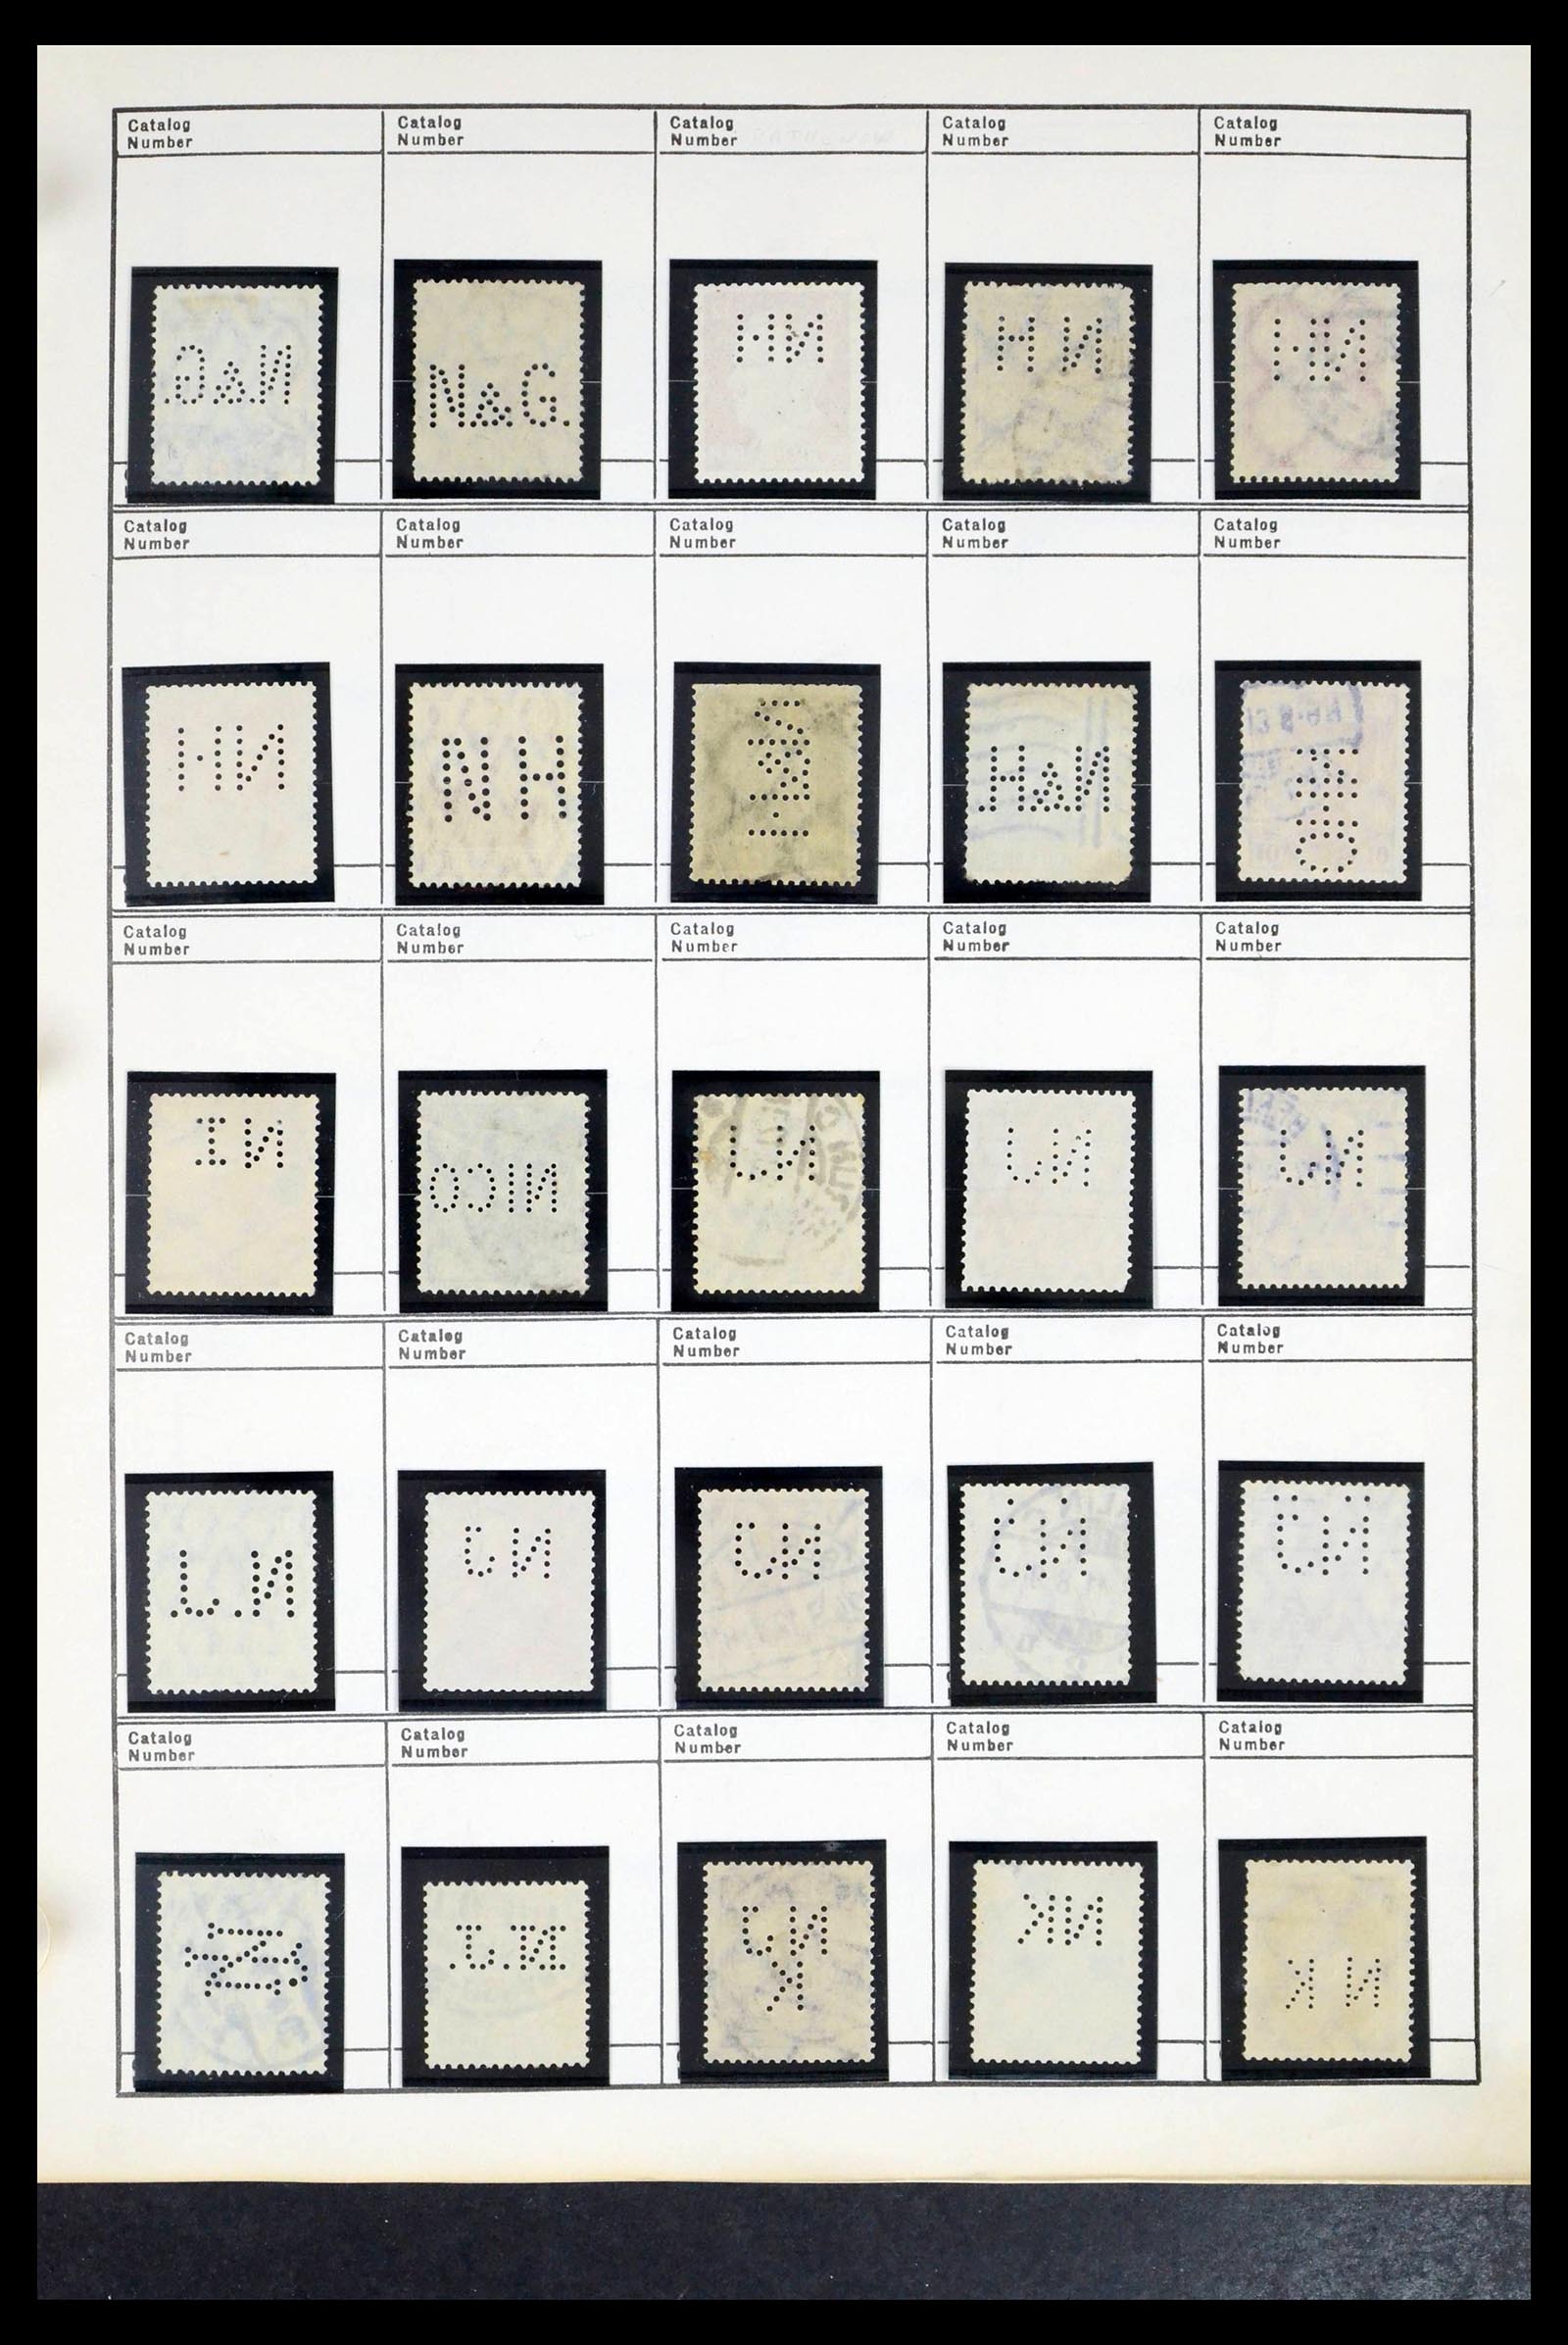 Catalog Catalog Catalog Catalog Catalog
Number Number Number Number Number
N&G.
N&G.
NH
NH
NH
Catalog Catalog Catalog Catalog Catalog
Number Number Number Number Number
NH
NH
N&H.
Catalog Catalog Catalog Catalog Catalog
Number Number Number Number Number
NI
NICO
NJ
NJ
NJ
Catalog Catalog Catalog Catalog Catalog
Number Number Number Number Number
N.J.
NJ
NJ
NJ
NJ
Catalog Catalog Catalog Catalog Catalog
Number Number Number Number Number
NJ
K
NK
NK